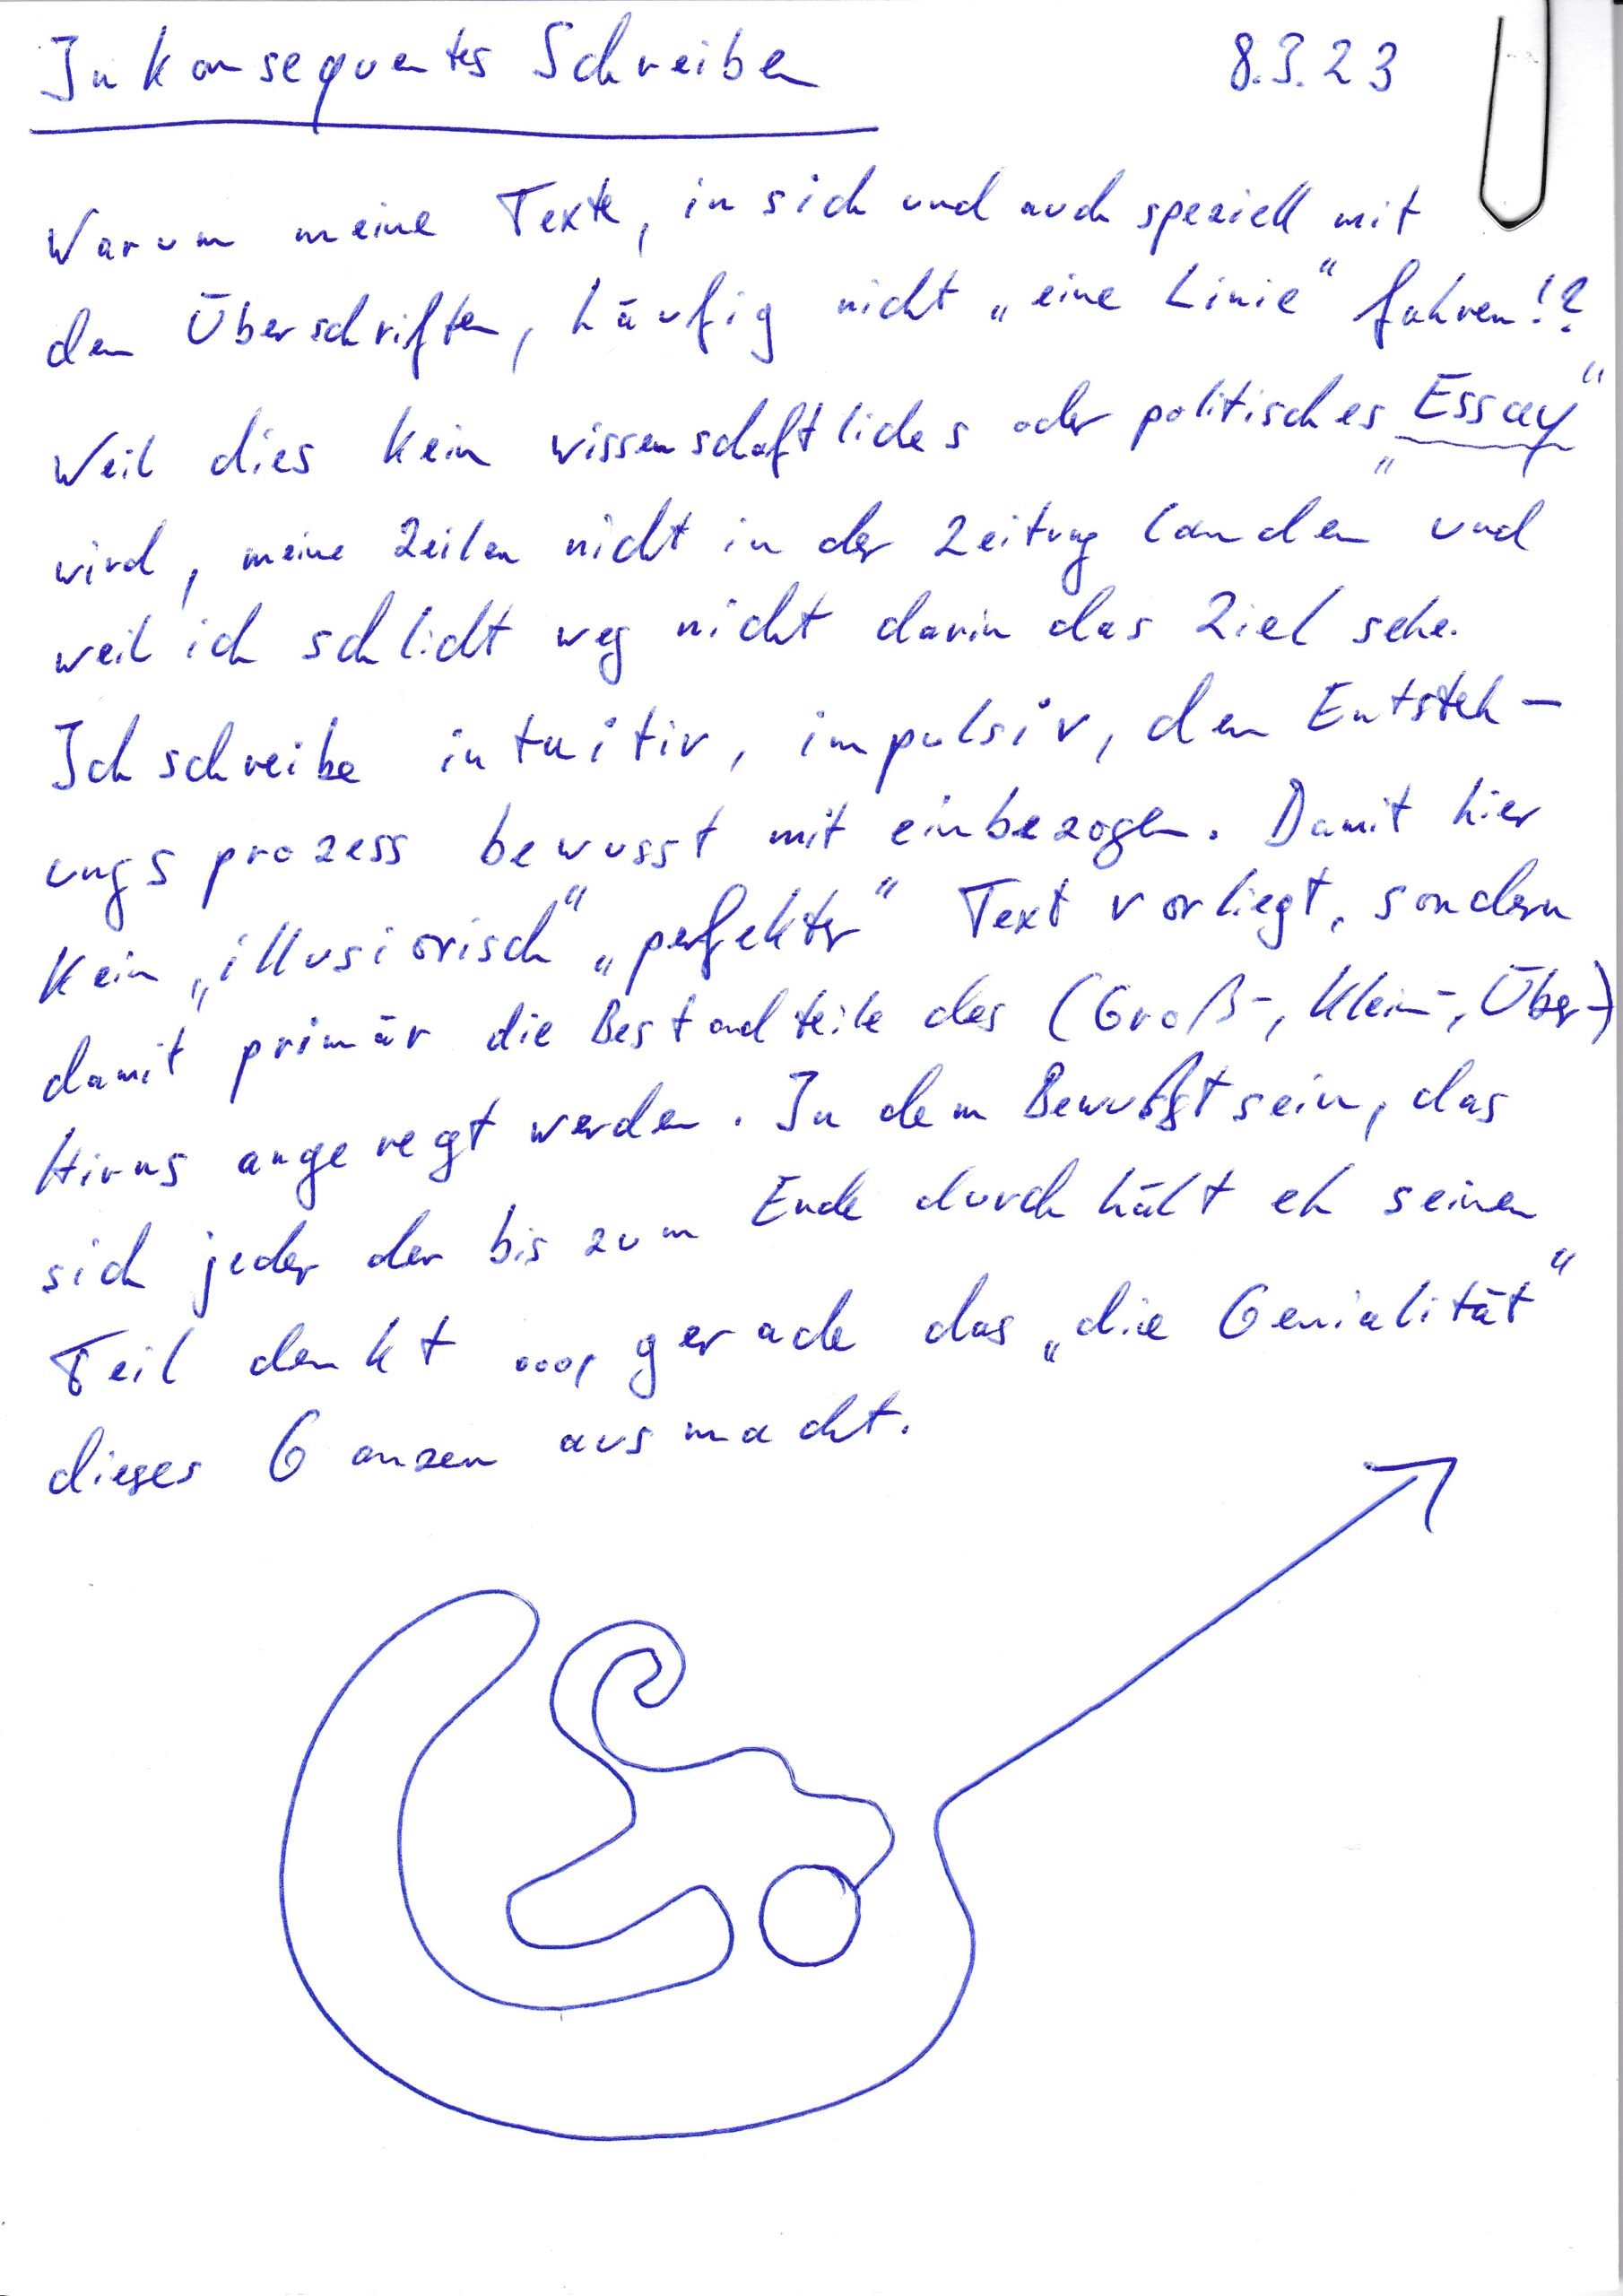 Inkonsequentes Schreiben 8.3.23
Warum meine Texte, in sich und auch speziell mit
den Überschriften, häufig nicht „eine Linie“ fahren!?
Weil dies kein wissenschaftliches oder politisches „Essay“
wird, meine Zeilen nicht in der Zeitung landen und
weil ich schlicht weg nicht darin das Ziel sehe.
Ich schreibe intuitiv, impulsiv, den Entsteh-
ungsprozess bewusst mit einbezogen. Damit hier
kein „illusiorisch“ „perfekter“ Text vorliegt, sondern
damit primär die Bestandteile des (Groß-, Klein-, Über-)
Hirns angeregt werden. In dem Bewußtsein, das
sich jeder der bis zum Ende durchhält eh seinen
Teil denkt ...., gerade das „die Genialität“
dieses Ganzen ausmacht.